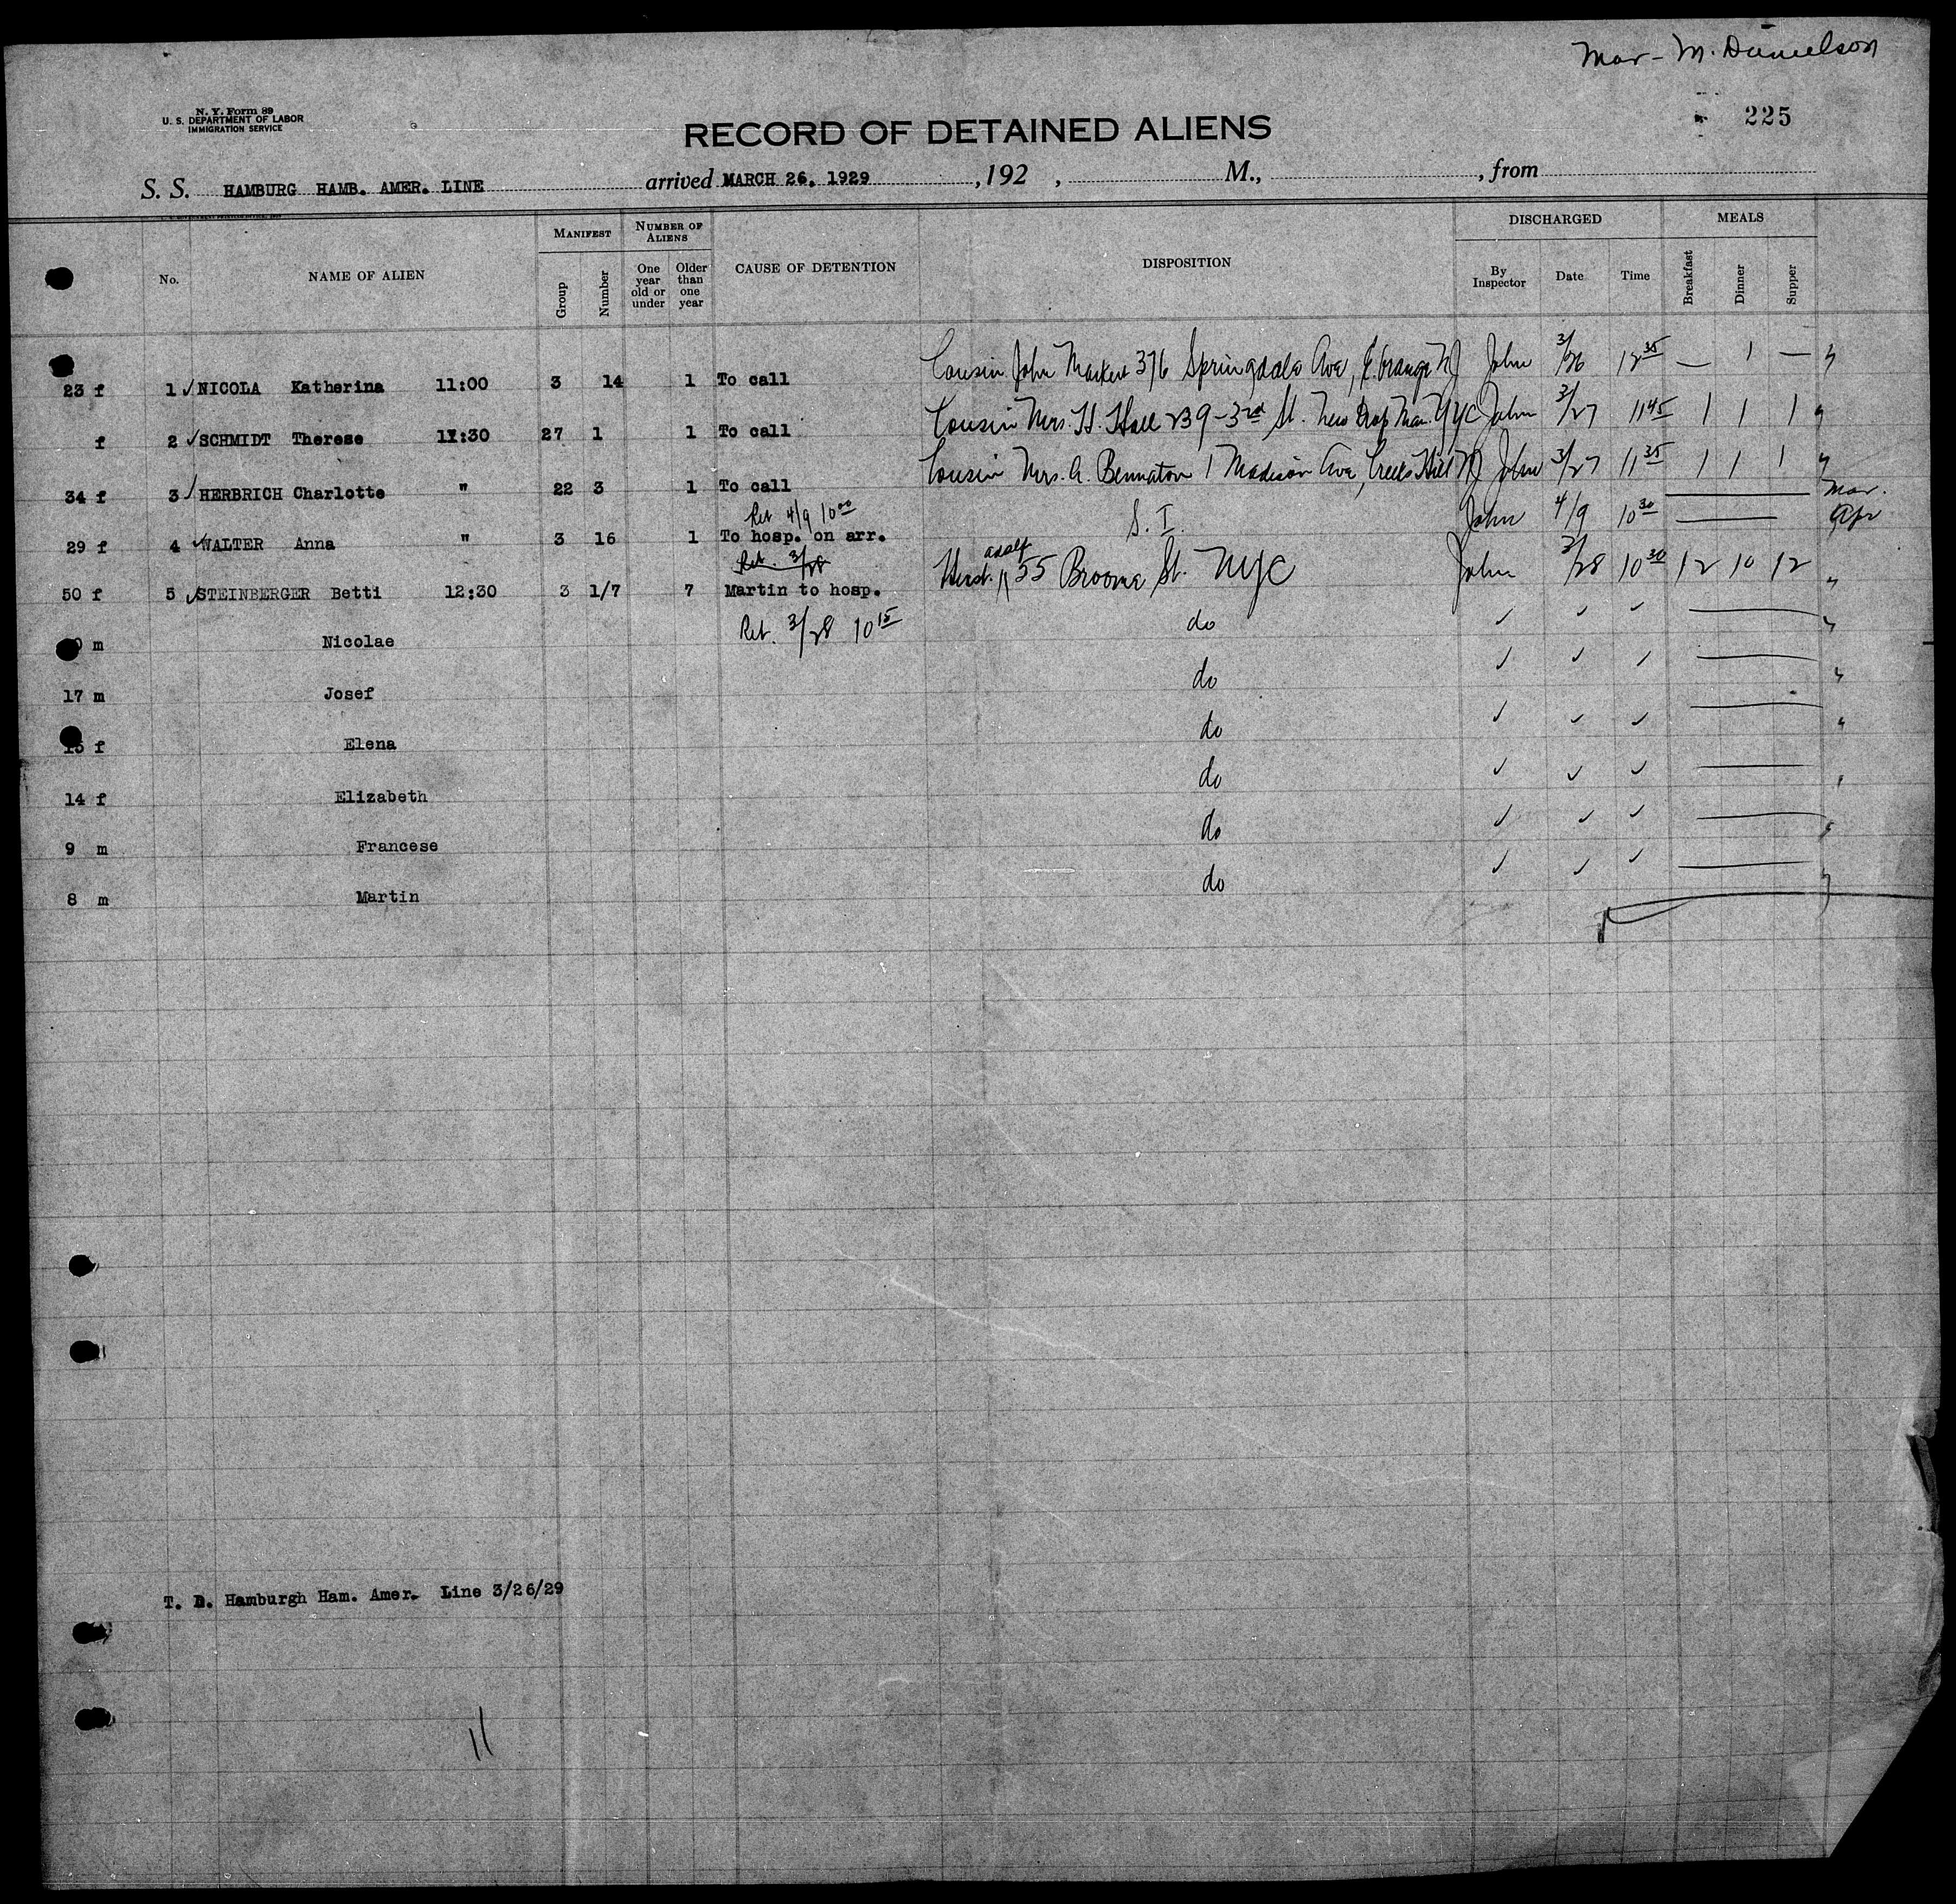 Mar - M. Danielson
N. Y. Form 89
U. S. DEPARTMENT OF LABOR
IMMIGRATION SERVICE
225
RECORD OF DETAINED ALIENS
S. S. HAMBURG HAMB. AMER. LINE arrived MARCH 26, 1929 , 192 , M., , from
No. NAME OF ALIEN MANIFEST Group Number NUMBER OF ALIENS One year old or under Older than one year CAUSE OF DETENTION DISPOSITION DISCHARGED By Inspector Date Time MEALS Breakfast Dinner Supper
23 f 1 ✓ NICOLA Katherina 11:00 3 14 1 To call Cousin John Markert 376 Springdale Ave, E. Orange NJ John 3/26 12 35 — 1 — "
f 2 ✓ SCHMIDT Therese 11:30 27 1 1 To call Cousin Mrs. H. Hall 239 - 3rd St. New NYC John 3/27 11 45 1 1 1 "
34 f 3 ✓ HERBRICH Charlotte " 22 3 1 To call Cousin Mrs. A. 1 Madison Ave, NJ John 3/27 11 35 1 1 1 "
Mar.
Ret 4/9 10 00
29 f 4 ✓ WALTER Anna " 3 16 1 To hosp. on arr. S. I. John 4/9 10 30 — Apr
Ret. 3/28
50 f 5 ✓ STEINBERGER Betti 12:30 3 1/7 7 Martin to hosp. Adolf 55 Broome St. NYC John 3/28 10 30 12 10 12 "
Ret. 3/28 10 15
m Nicolae do ✓ ✓ ✓ — "
17 m Josef do ✓ ✓ ✓ — "
15 f Elena do ✓ ✓ ✓ — "
14 f Elizabeth do ✓ ✓ ✓ — "
9 m Francese do ✓ ✓ ✓ — "
8 m Martin do ✓ ✓ ✓ — "
T. D. Hamburgh Ham. Amer. Line 3/26/29
11